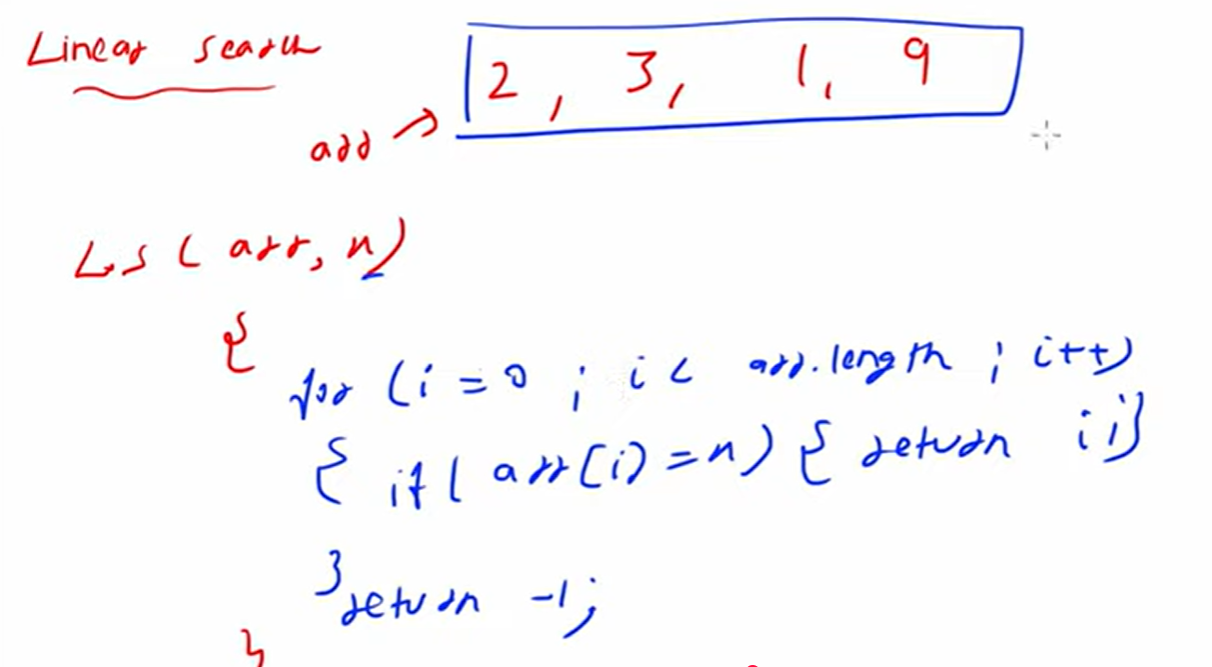 Linear search
2, 3, 1, 9
arr
LS (arr, n)
{
for (i = 0 ; i < arr.length ; i++)
{ if ( arr[i] = n) { return i;}
}
return -1;
}